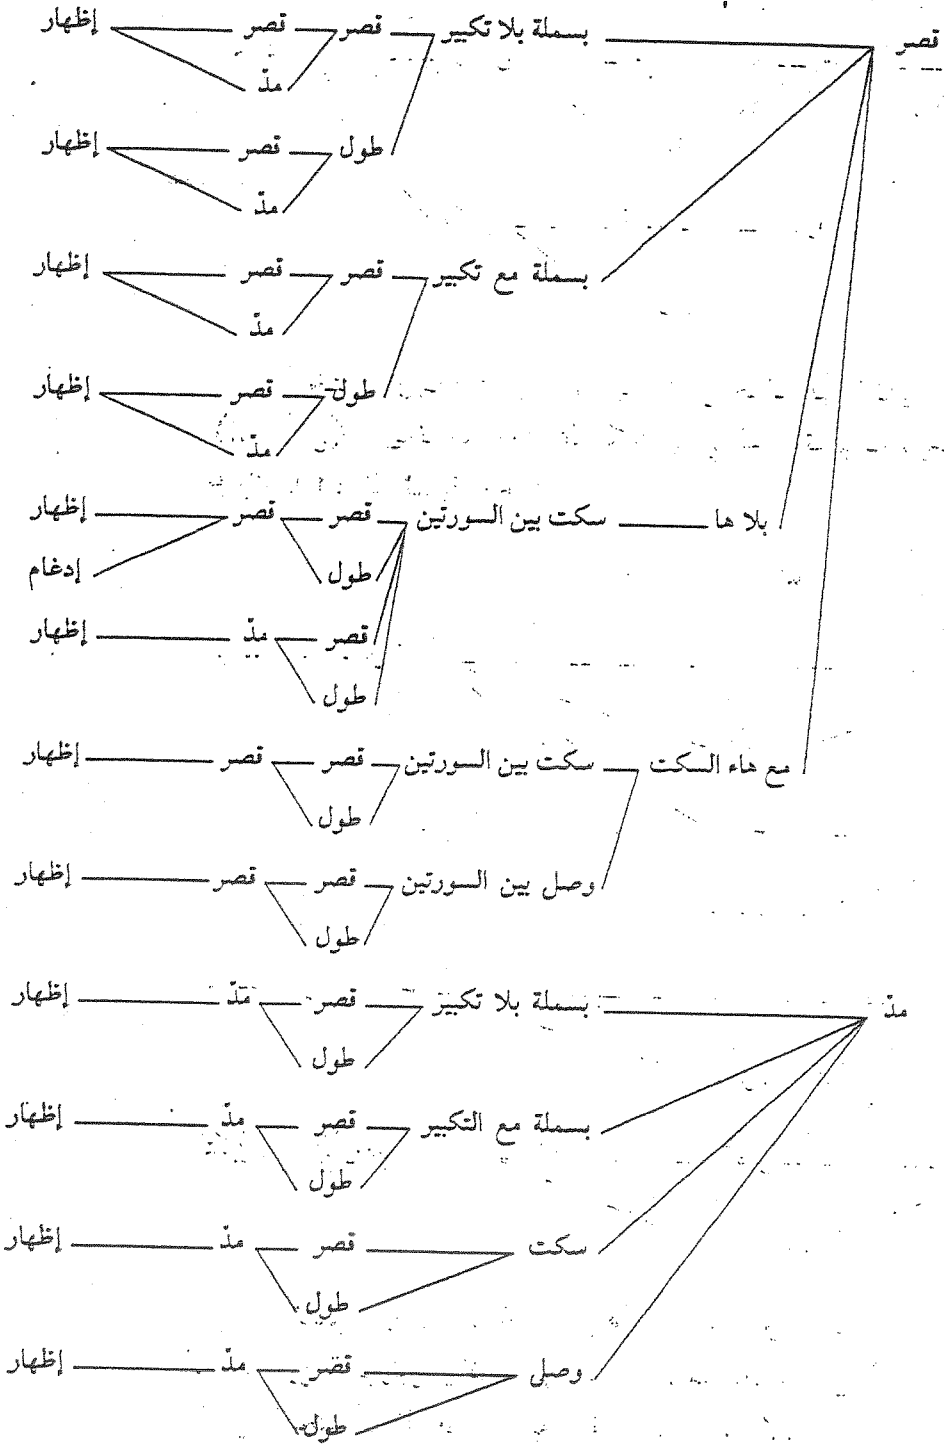 قصر بسملة بلا تكبير قصر قصر إظهار
مدّ
طول قصر إظهار
مدّ
بسملة مع تكبير قصر قصر إظهار
مدّ
طول قصر إظهار
مدّ
بلا ها سكت بين السورتين قصر قصر إظهار
طول إدغام
قصر مدّ إظهار
طول
مع هاء السكت سكت بين السورتين قصر قصر إظهار
طول
وصل بين السورتين قصر قصر إظهار
طول
مدّ بسملة بلا تكبير قصر مدّ إظهار
طول
بسملة مع التكبير قصر مدّ إظهار
طول
سكت قصر مدّ إظهار
طول
وصل قصر مدّ إظهار
طول